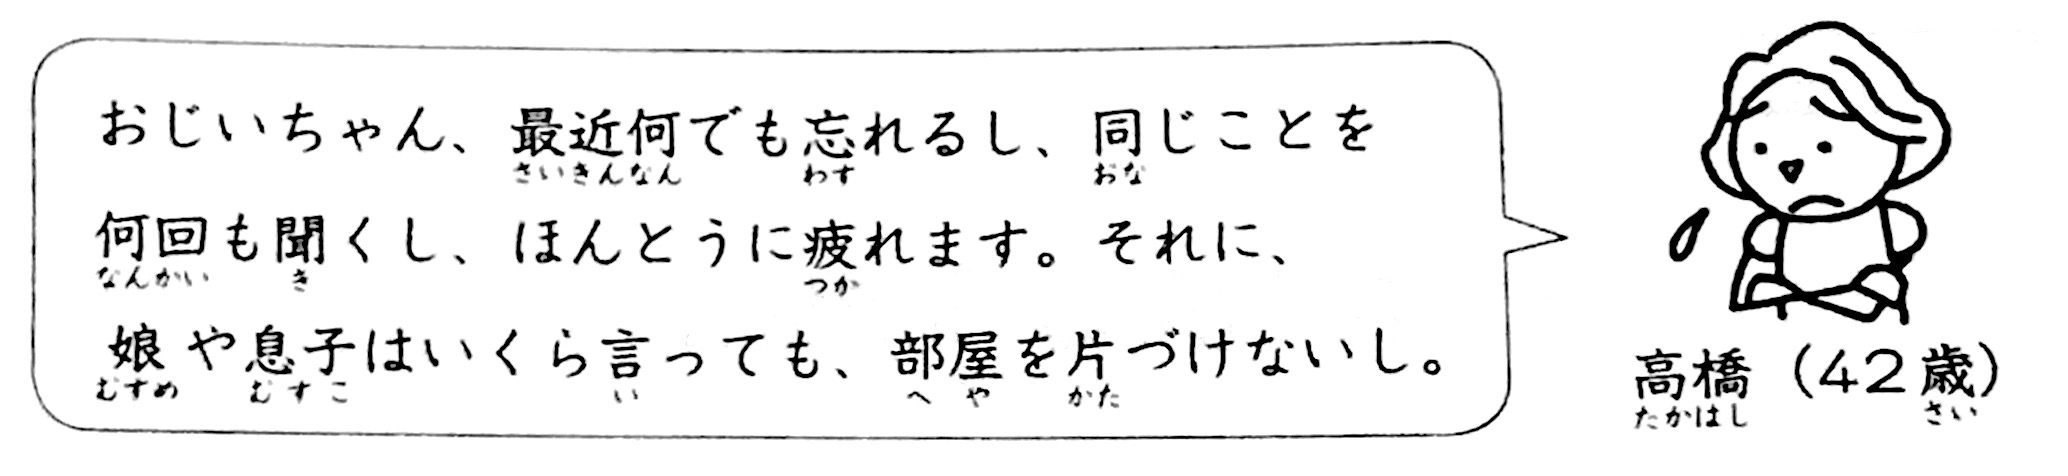 おじいちゃん、最近何でも忘れるし、同じことを
さいきんなん わす おな
何回も聞くし、ほんとうに疲れます。それに、
なんかい き つか
娘や息子はいくら言っても、部屋を片づけないし。
むすめ むすこ い へや かた
高橋（42歳）
たかはし さい